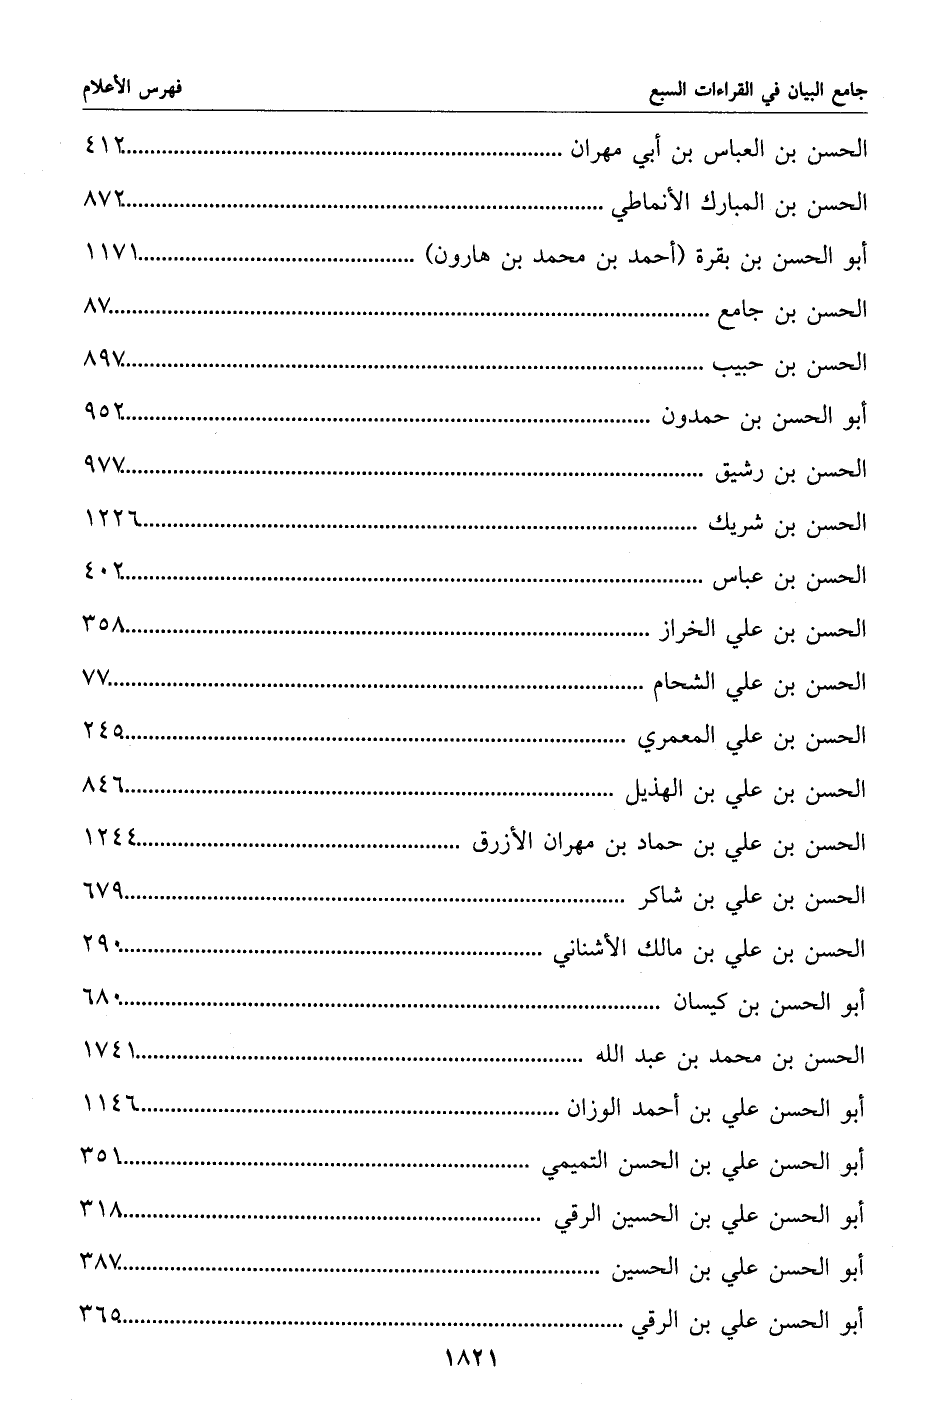 جامع البيان في القراءات السبع فهرس الأعلام
الحسن بن العباس بن أبي مهران ........ ٤١٢
الحسن بن المبارك الأنماطي ........ ٨٧٢
أبو الحسن بن بقرة (أحمد بن محمد بن هارون) ........ ١١٧١
الحسن بن جامع ........ ٨٧
الحسن بن حبيب ........ ٨٩٧
أبو الحسن بن حمدون ........ ٩٥٢
الحسن بن رشيق ........ ٩٧٧
الحسن بن شريك ........ ١٢٢٦
الحسن بن عباس ........ ٤٠٢
الحسن بن علي الخراز ........ ٣٥٨
الحسن بن علي الشحام ........ ٧٧
الحسن بن علي المعمري ........ ٢٤٥
الحسن بن علي بن الهذيل ........ ٨٤٦
الحسن بن علي بن حماد بن مهران الأزرق ........ ١٢٤٤
الحسن بن علي بن شاكر ........ ٦٧٩
الحسن بن علي بن مالك الأشناني ........ ٢٩٠
أبو الحسن بن كيسان ........ ٦٨٠
الحسن بن محمد بن عبد الله ........ ١٧٤١
أبو الحسن علي بن أحمد الوزان ........ ١١٤٦
أبو الحسن علي بن الحسن التميمي ........ ٣٥١
أبو الحسن علي بن الحسين الرقي ........ ٣١٨
أبو الحسن علي بن الحسين ........ ٣٨٧
أبو الحسن علي بن الرقي ........ ٣٦٥
١٨٢١